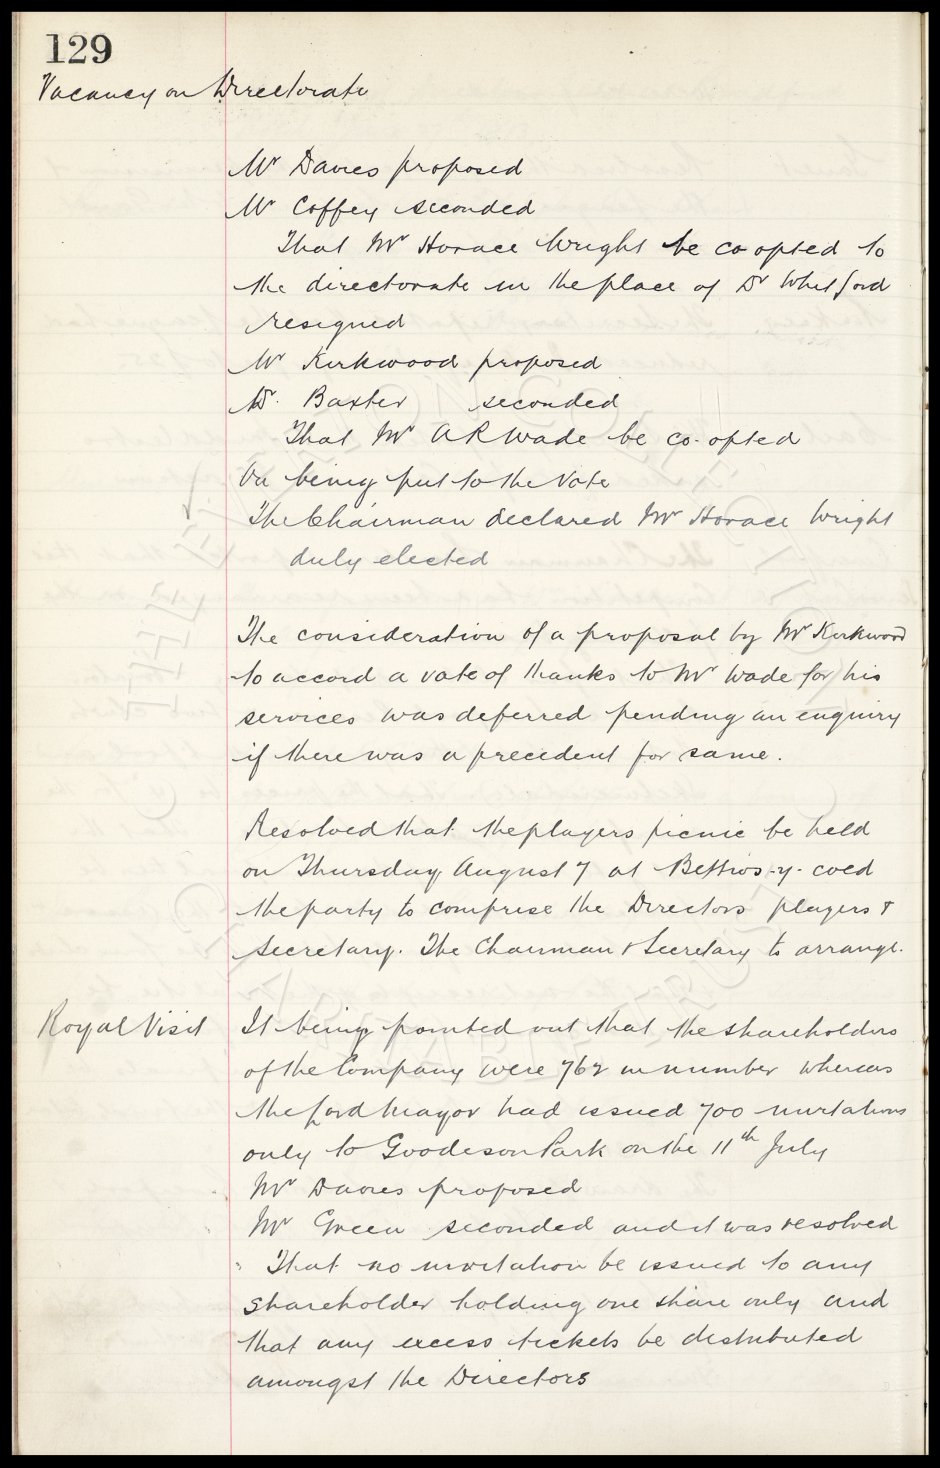 129
Vacancy on Directorate
Mr Davies proposed
Mr Coffey seconded
That Mr Horace Wright be co opted to
the directorate in the place of Dr Whitford
resigned
Mr Kirkwood proposed
Dr. Baxter seconded
That Mr A R Wade be co-opted
On being put to the Vote
The Chairman declared Mr Horace Wright
duly elected
The consideration of a proposal by Mr Kirkwood
to accord a vote of thanks to Mr Wade for his
services was deferred pending an enquiry
if there was a precedent for same.
Resolved that the players picnic be held
on Thursday August 7 at Bettws-y-coed
the party to comprise the Directors players &
Secretary. The Chairman & Secretary to arrange.
Royal Visit
It being pointed out that the shareholders
of the Company were 762 in number whereas
the Lord Mayor had issued 700 invitations
only to Goodison Park on the 11th July
Mr Davies proposed
Mr Green seconded and it was resolved
"That no invitation be issued to any
shareholder holding one share only and
that any excess tickets be distributed
amongst the Directors